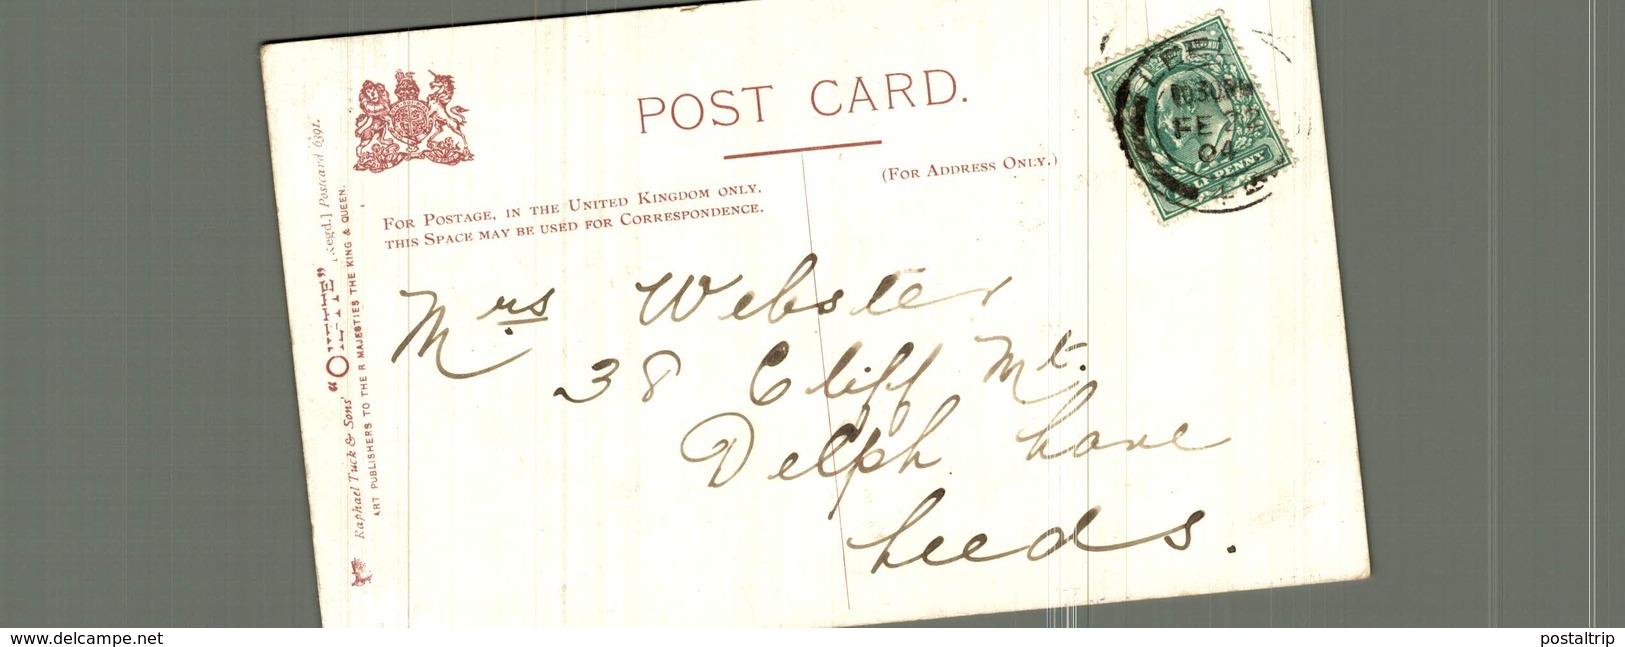 POST CARD.
(FOR ADDRESS ONLY.)
FOR POSTAGE, IN THE UNITED KINGDOM ONLY,
THIS SPACE MAY BE USED FOR CORRESPONDENCE.
Raphael Tuck & Sons' "OILETTE" [Regd.] Postcard 6391.
ART PUBLISHERS TO THE R MAJESTIES THE KING & QUEEN.
10.30PM
FE 22
04
PENNY
Mrs Webster
38 Cliff Mt.
Delph Lane
Leeds.
www.delcampe.net
postaltrip